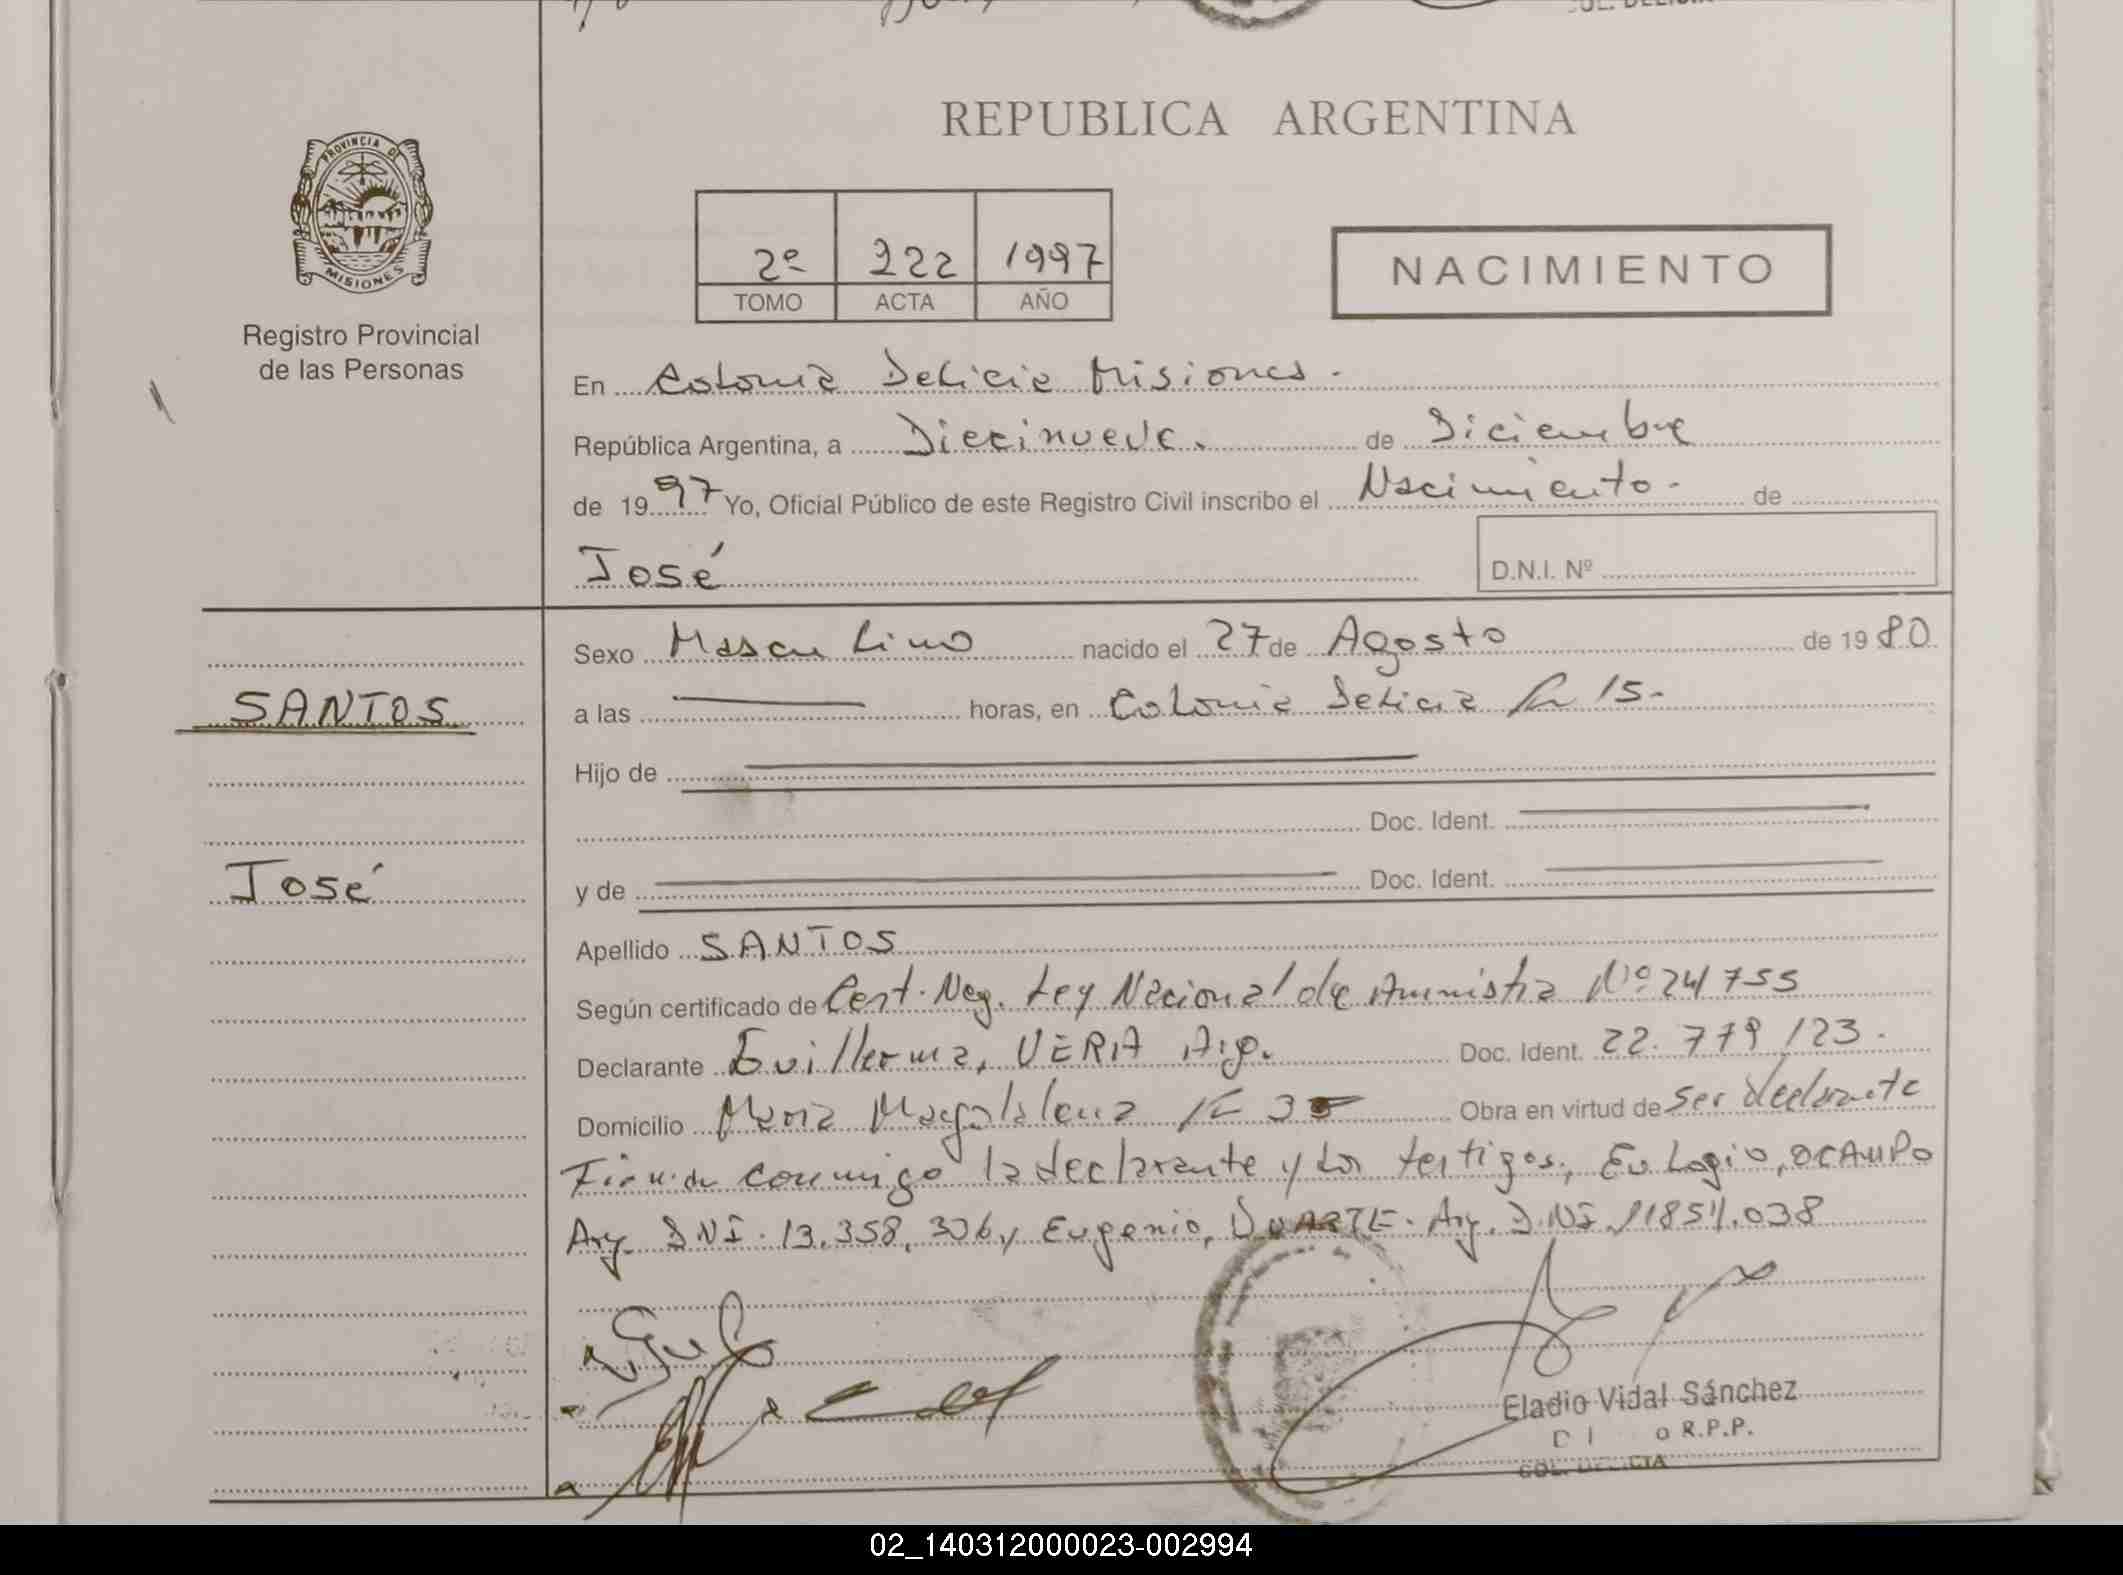 REPUBLICA ARGENTINA
PROVINCIA DE
MISIONES
Registro Provincial
de las Personas
2º 222 1997
TOMO ACTA AÑO
NACIMIENTO
En Colonia Delicia Misiones.
República Argentina, a Diecinueve. de Diciembre
de 1997 Yo, Oficial Público de este Registro Civil inscribo el Nacimiento. de
José
D.N.I. Nº
Sexo Masculino nacido el 27 de Agosto de 1980
SANTOS
a las horas, en Colonia Delicia Km 15.
Hijo de
Doc. Ident.
y de Doc. Ident.
José
Apellido SANTOS
Según certificado de Cert. Neg. Ley Nacional de Amnistia Nº 24755
Declarante Guillerma, VERA Arg. Doc. Ident. 22.779 123.
Domicilio Maria Magdalena K 3 Obra en virtud de ser declarante
Firman conmigo la declarante y los testigos, Eulogio, OCAMPO
Arg. DNI. 13.358.306 y Eugenio, DUARTE. Arg. DNI. 11851.038
Eladio Vidal Sánchez
R.P.P.
02_140312000023-002994